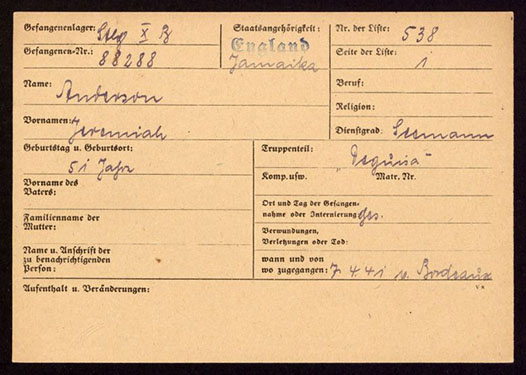 Gefangenenlager: Stlg X B
Gefangenen-Nr.: 88288
Staatsangehörigkeit:
England
Jamaika
Nr. der Liste: 538
Seite der Liste: 1
Name: Anderson
Beruf:
Vornamen: Jeremiah
Religion:
Dienstgrad: Seemann
Geburtstag u. Geburtsort:
51 Jahr
Truppenteil:
Komp. usw. Matr. Nr.
Vorname des
Vaters:
Ort und Tag der Gefangen-
nahme oder Internierung
Familienname der
Mutter:
Verwundungen,
Verletzungen oder Tod:
Name u. Anschrift der
zu benachrichtigenden
Person:
wann und von
wo zugegangen: 7.4.41 v. Bordeaux
Aufenthalt u. Veränderungen: